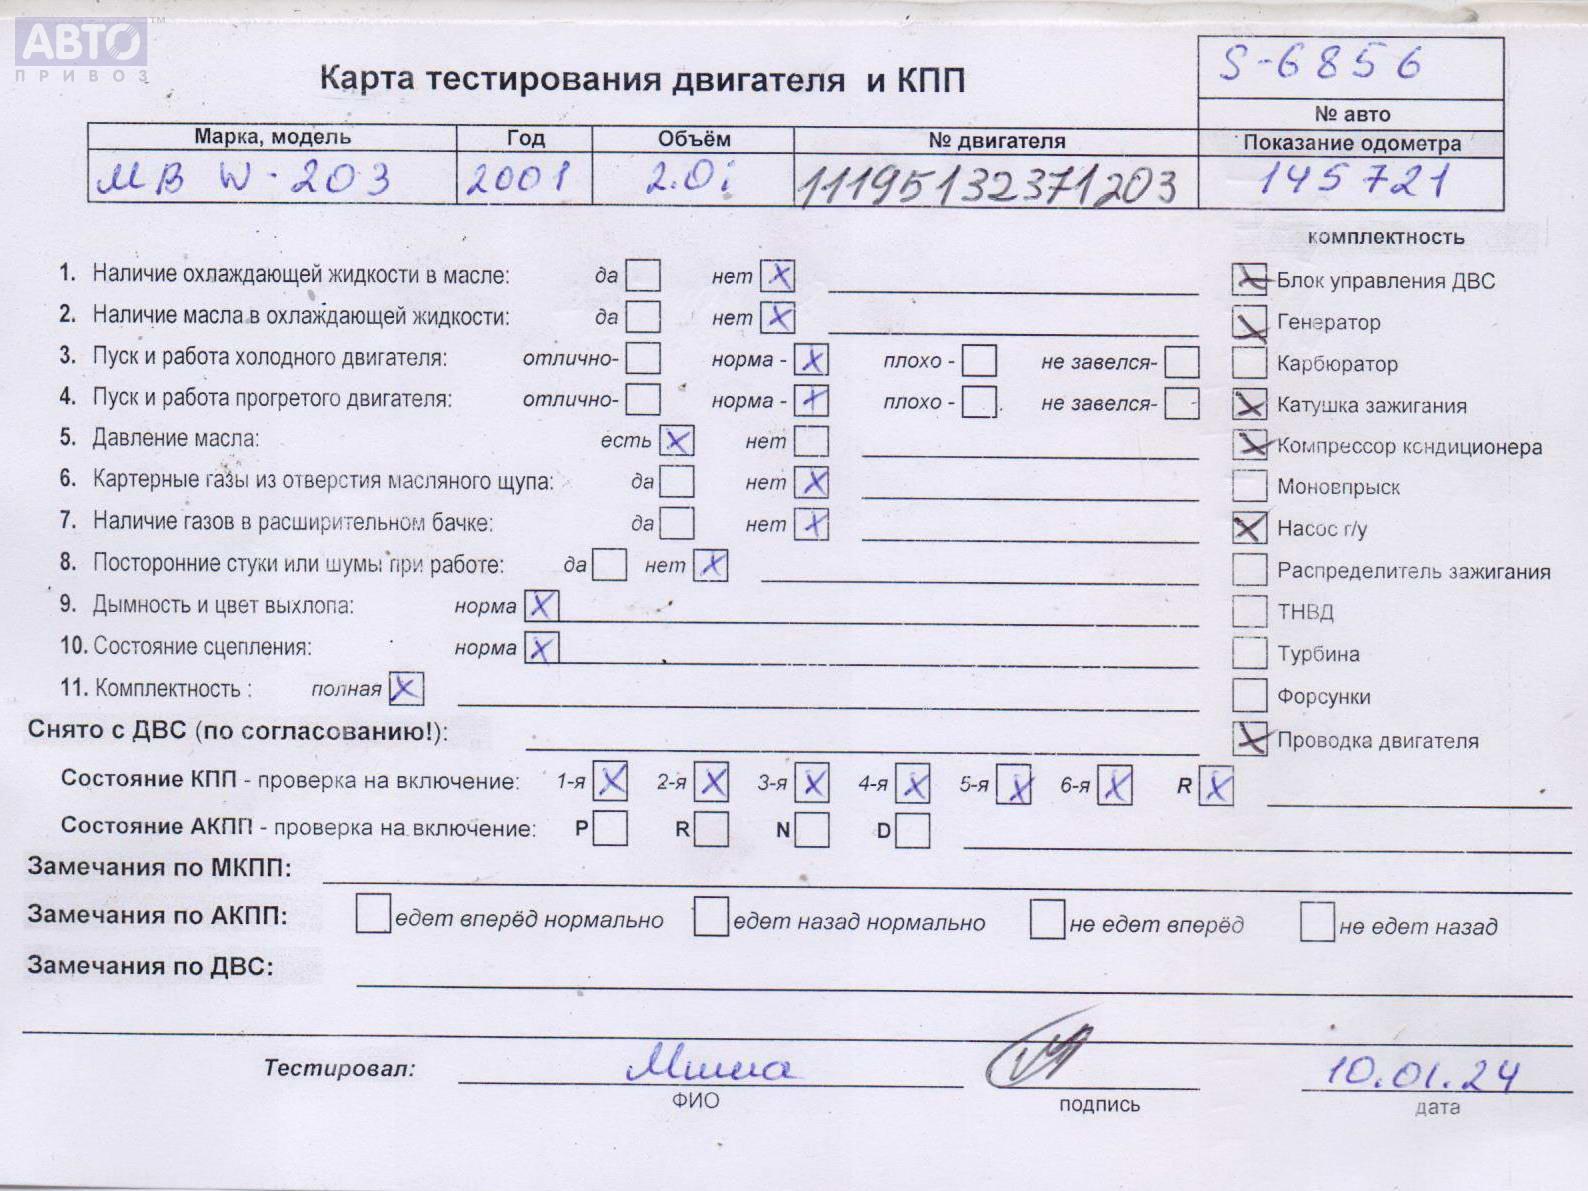 АВТО™
ПРИВОЗ
Карта тестирования двигателя и КПП
S-6856
№ авто
Марка, модель Год Объём № двигателя Показание одометра
MB W-203 2001 2.0i 11195132371203 145721
комплектность
1. Наличие охлаждающей жидкости в масле: да нет X
Блок управления ДВС X
2. Наличие масла в охлаждающей жидкости: да нет X
Генератор X
3. Пуск и работа холодного двигателя: отлично- норма - X плохо - не завелся-
Карбюратор
4. Пуск и работа прогретого двигателя: отлично- норма - X плохо - не завелся-
Катушка зажигания X
5. Давление масла: есть X нет
Компрессор кондиционера X
6. Картерные газы из отверстия масляного щупа: да нет X
Моновпрыск
7. Наличие газов в расширительном бачке: да нет X
Насос г/у X
8. Посторонние стуки или шумы при работе: да нет X
Распределитель зажигания
9. Дымность и цвет выхлопа: норма X
ТНВД
10. Состояние сцепления: норма X
Турбина
11. Комплектность : полная X
Форсунки
Снято с ДВС (по согласованию!):
Проводка двигателя X
Состояние КПП - проверка на включение: 1-я X 2-я X 3-я X 4-я X 5-я X 6-я X R X
Состояние АКПП - проверка на включение: P R N D
Замечания по МКПП:
Замечания по АКПП: едет вперёд нормально едет назад нормально не едет вперёд не едет назад
Замечания по ДВС:
Тестировал: Миша 10.01.24
ФИО подпись дата